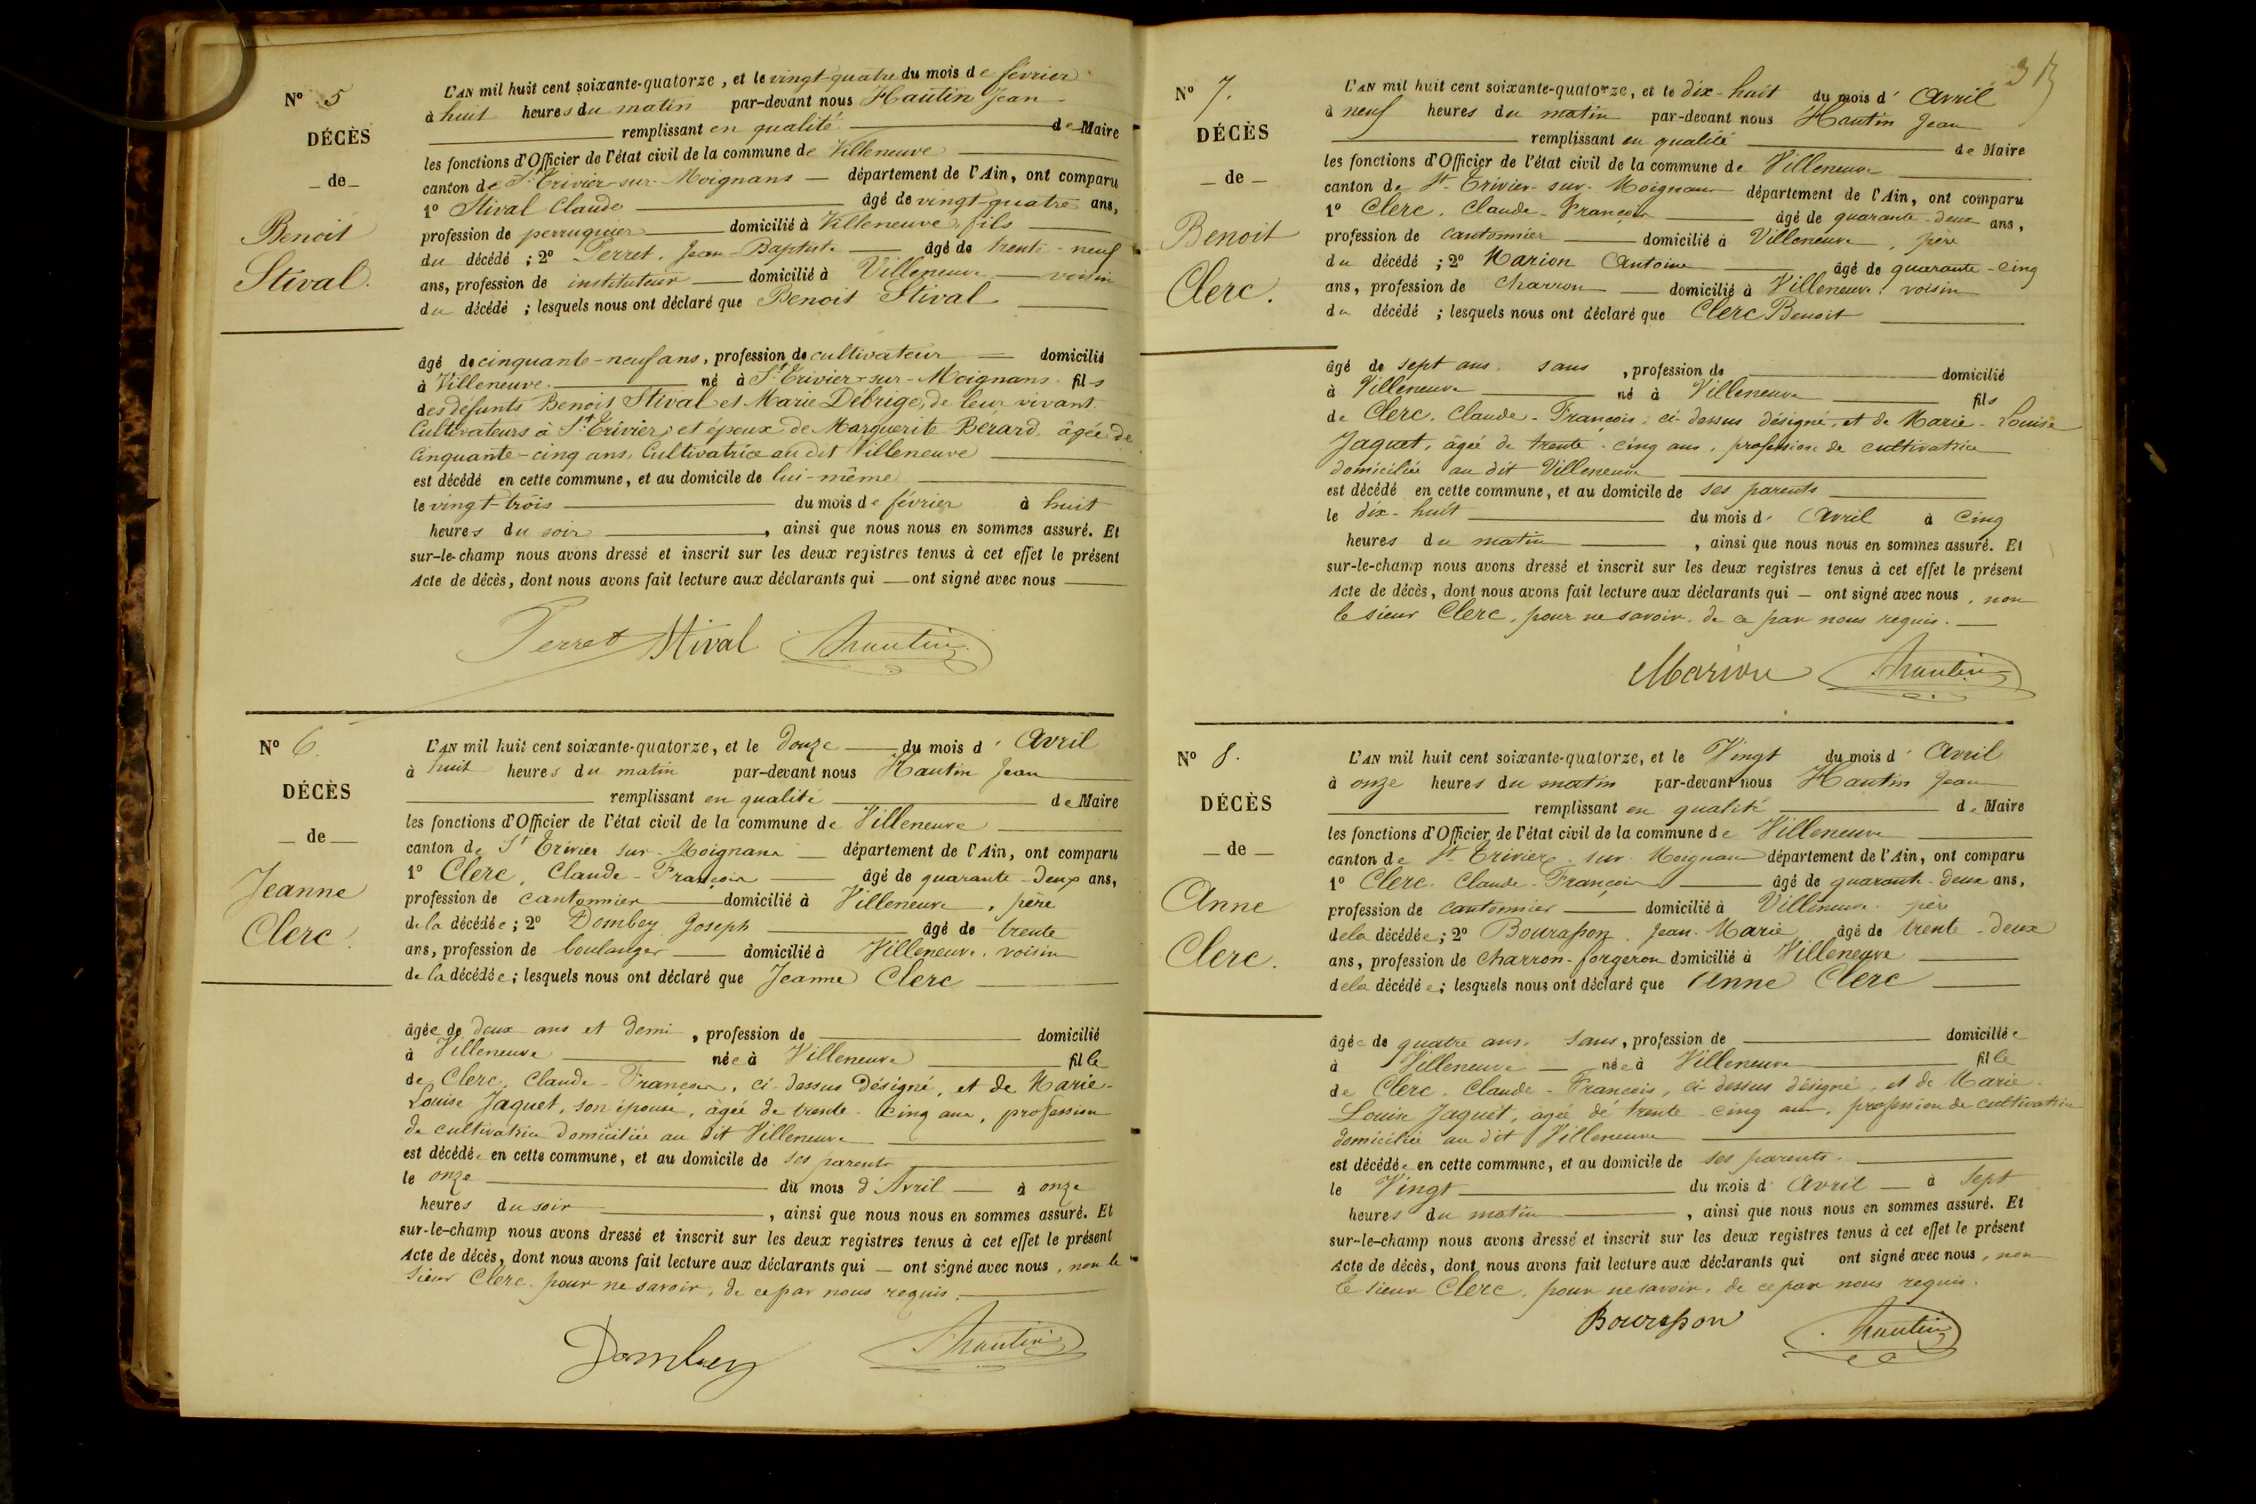 N° 5
DÉCÈS
de
Benoit
Stival.
L'AN mil huit cent soixante-quatorze, et le vingt-quatre du mois de février
à huit heures du matin par-devant nous Hautin Jean
remplissant en qualité de Maire
les fonctions d'Officier de l'état civil de la commune de Villeneuve
canton de St Trivier-sur-Moignans département de l'Ain, ont comparu
1° Stival Claude âgé de vingt-quatre ans,
profession de perruquier domicilié à Villeneuve, fils
du décédé ; 2° Perret, Jean-Baptiste âgé de trente-neuf
ans, profession de instituteur domicilié à Villeneuve voisin
du décédé ; lesquels nous ont déclaré que Benoit Stival
âgé de cinquante-neuf ans, profession de cultivateur domicilié
à Villeneuve né à St Trivier-sur-Moignans fils
des défunts Benoit Stival et Marie Débruge, de leur vivant
Cultivateurs à St Trivier, et époux de Marguerite Bérard, âgée de
Cinquante-cinq ans, Cultivatrice au dit Villeneuve
est décédé en cette commune, et au domicile de lui-même
le vingt-trois du mois de février à huit
heures du soir, ainsi que nous nous en sommes assuré. Et
sur-le-champ nous avons dressé et inscrit sur les deux registres tenus à cet effet le présent
Acte de décès, dont nous avons fait lecture aux déclarants qui ont signé avec nous
Perret Stival Hautin
N° 6.
DÉCÈS
de
Jeanne
Clerc.
L'AN mil huit cent soixante-quatorze, et le douze du mois d'Avril
à huit heures du matin par-devant nous Hautin Jean
remplissant en qualité de Maire
les fonctions d'Officier de l'état civil de la commune de Villeneuve
canton de St Trivier sur-Moignans département de l'Ain, ont comparu
1° Clerc, Claude-François âgé de quarante-deux ans,
profession de cantonnier domicilié à Villeneuve, père
de la décédée ; 2° Dombey Joseph âgé de trente
ans, profession de boulanger domicilié à Villeneuve, voisin
de la décédée ; lesquels nous ont déclaré que Jeanne Clerc
âgée de deux ans et demi, profession de domicilié
à Villeneuve née à Villeneuve fille
de Clerc, Claude-François, ci-dessus désigné, et de Marie-
Louise Jaquet, son épouse, âgée de trente-cinq ans, profession
de cultivatrice domiciliée au dit Villeneuve
est décédée en cette commune, et au domicile de ses parents
le onze du mois d'Avril à onze
heures du soir, ainsi que nous nous en sommes assuré. Et
sur-le-champ nous avons dressé et inscrit sur les deux registres tenus à cet effet le présent
Acte de décès, dont nous avons fait lecture aux déclarants qui ont signé avec nous, non le
sieur Clerc, pour ne savoir, de ce par nous requis.
Dombey Hautin
N° 7.
DÉCÈS
de
Benoit
Clerc.
L'AN mil huit cent soixante-quatorze, et le dix-huit du mois d'Avril
à neuf heures du matin par-devant nous Hautin Jean
remplissant en qualité de Maire
les fonctions d'Officier de l'état civil de la commune de Villeneuve
canton de St-Trivier-sur-Moignans département de l'Ain, ont comparu
1° Clerc, Claude-François âgé de quarante-deux ans,
profession de cantonnier domicilié à Villeneuve, père
du décédé ; 2° Marion Antoine âgé de quarante-cinq
ans, profession de charron domicilié à Villeneuve, voisin
du décédé ; lesquels nous ont déclaré que Clerc Benoit
âgé de sept ans, sans, profession de domicilié
à Villeneuve né à Villeneuve fils
de Clerc, Claude-François, ci-dessus désigné, et de Marie-Louise
Jaquet, âgée de trente-cinq ans, profession de cultivatrice
domiciliée au dit Villeneuve
est décédé en cette commune, et au domicile de ses parents
le dix-huit du mois d'Avril à cinq
heures du matin, ainsi que nous nous en sommes assuré. Et
sur-le-champ nous avons dressé et inscrit sur les deux registres tenus à cet effet le présent
Acte de décès, dont nous avons fait lecture aux déclarants qui ont signé avec nous, non
le sieur Clerc, pour ne savoir, de ce par nous requis.
Marion Hautin
N° 8.
DÉCÈS
de
Anne
Clerc.
L'AN mil huit cent soixante-quatorze, et le Vingt du mois d'Avril
à onze heures du matin par-devant nous Hautin Jean
remplissant en qualité de Maire
les fonctions d'Officier de l'état civil de la commune de Villeneuve
canton de St-Trivier-sur-Moignans département de l'Ain, ont comparu
1° Clerc, Claude-François âgé de quarante-deux ans,
profession de cantonnier domicilié à Villeneuve, père
de la décédée ; 2° Bourasson, Jean-Marie âgé de trente-deux
ans, profession de charron-forgeron domicilié à Villeneuve
de la décédée ; lesquels nous ont déclaré que Anne Clerc
âgée de quatre ans, sans, profession de domiciliée
à Villeneuve née à Villeneuve fille
de Clerc, Claude-François, ci-dessus désigné, et de Marie-
Louise Jaquet, âgée de trente-cinq ans, profession de cultivatrice
domiciliée au dit Villeneuve
est décédée en cette commune, et au domicile de ses parents
le Vingt du mois d'Avril à sept
heures du matin, ainsi que nous nous en sommes assuré. Et
sur-le-champ nous avons dressé et inscrit sur les deux registres tenus à cet effet le présent
Acte de décès, dont nous avons fait lecture aux déclarants qui ont signé avec nous, non
le sieur Clerc, pour ne savoir, de ce par nous requis.
Bourasson Hautin